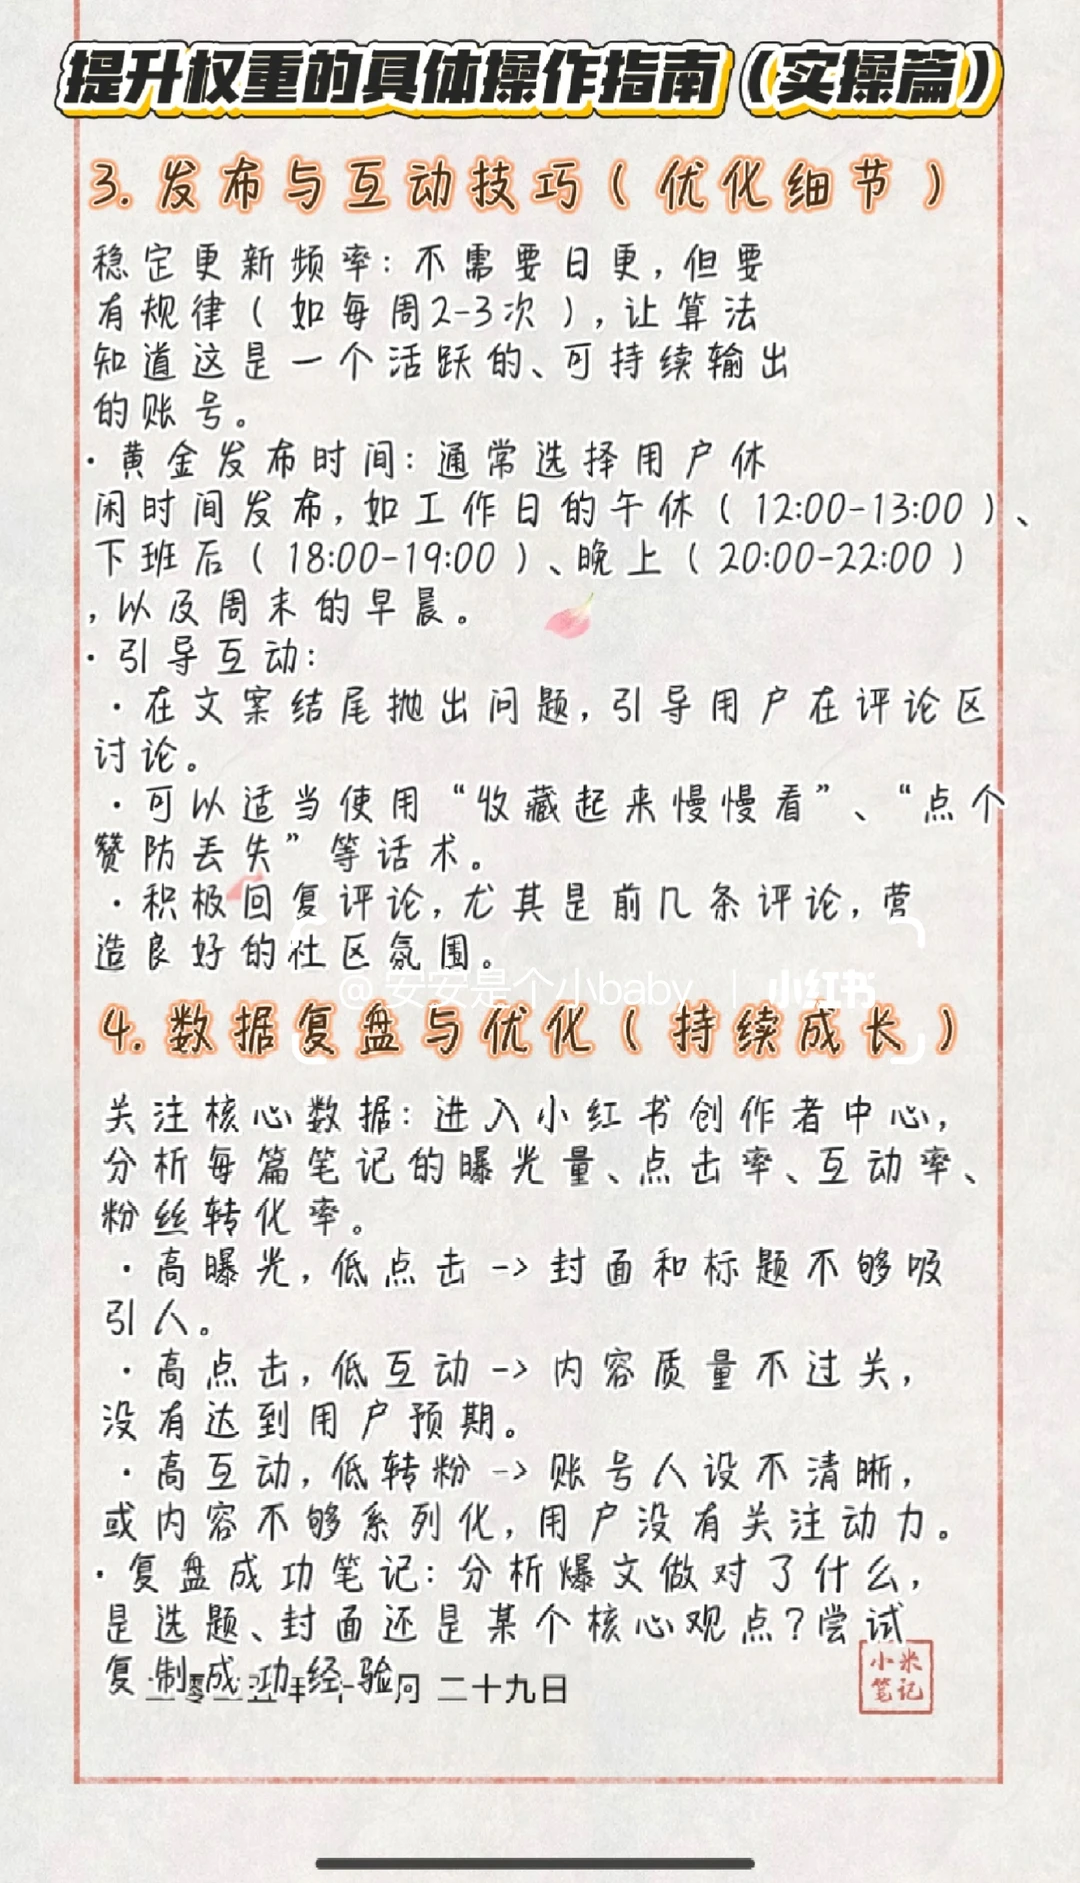 提升权重的具体操作指南（实操篇）
3.发布与互动技巧（优化细节）
稳定更新频率：不需要日更，但要
有规律（如每周2-3次），让算法
知道这是一个活跃的、可持续输出
的账号。
·黄金发布时间：通常选择用户休
闲时间发布，如工作日的午休（12:00-13:00）、
下班后（18:00-19:00）、晚上（20:00-22:00）
，以及周末的早晨。
·引导互动：
·在文案结尾抛出问题，引导用户在评论区
讨论。
·可以适当使用“收藏起来慢慢看”、“点个
赞防丢失”等话术。
·积极回复评论，尤其是前几条评论，营
造良好的社区氛围。
@安安是个小baby | 小红书
4.数据复盘与优化（持续成长）
关注核心数据：进入小红书创作者中心，
分析每篇笔记的曝光量、点击率、互动率、
粉丝转化率。
·高曝光，低点击->封面和标题不够吸
引人。
·高点击，低互动->内容质量不过关，
没有达到用户预期。
·高互动，低转粉->账号人设不清晰，
或内容不够系列化，用户没有关注动力。
·复盘成功笔记：分析爆文做对了什么，
是选题、封面还是某个核心观点？尝试
复制成功经验
月 二十九日
小米
笔记